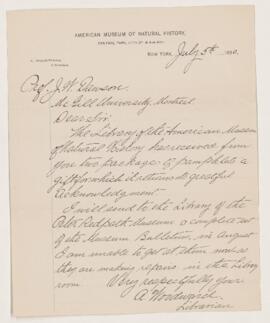 AMERICAN MUSEUM OF NATURAL HISTORY,
NEW YORK, July 5th 1890.
Prof. J. W. Dawson.
McGill University, Montreal
Dear Sir:
The Library of the American Museum
of Natural History has received from
you two packages of pamphlets a
gift for which it returns its grateful
acknowledgment
I will send to the Library of the
Peter Redpath Museum a complete set
of the Museum Bulletin, in August
I am unable to get at them now as
they are making repairs in the Library
room.
Very respectfully yours
A. Woodward.
Librarian